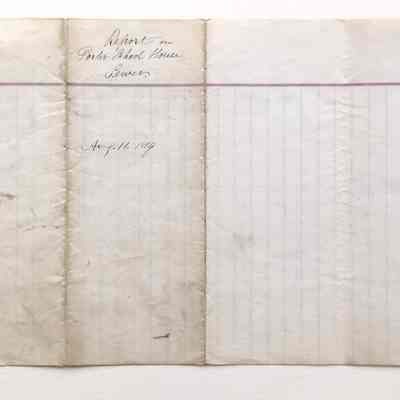 Report on
Porter School House
Sewer
Aug. 11. 1